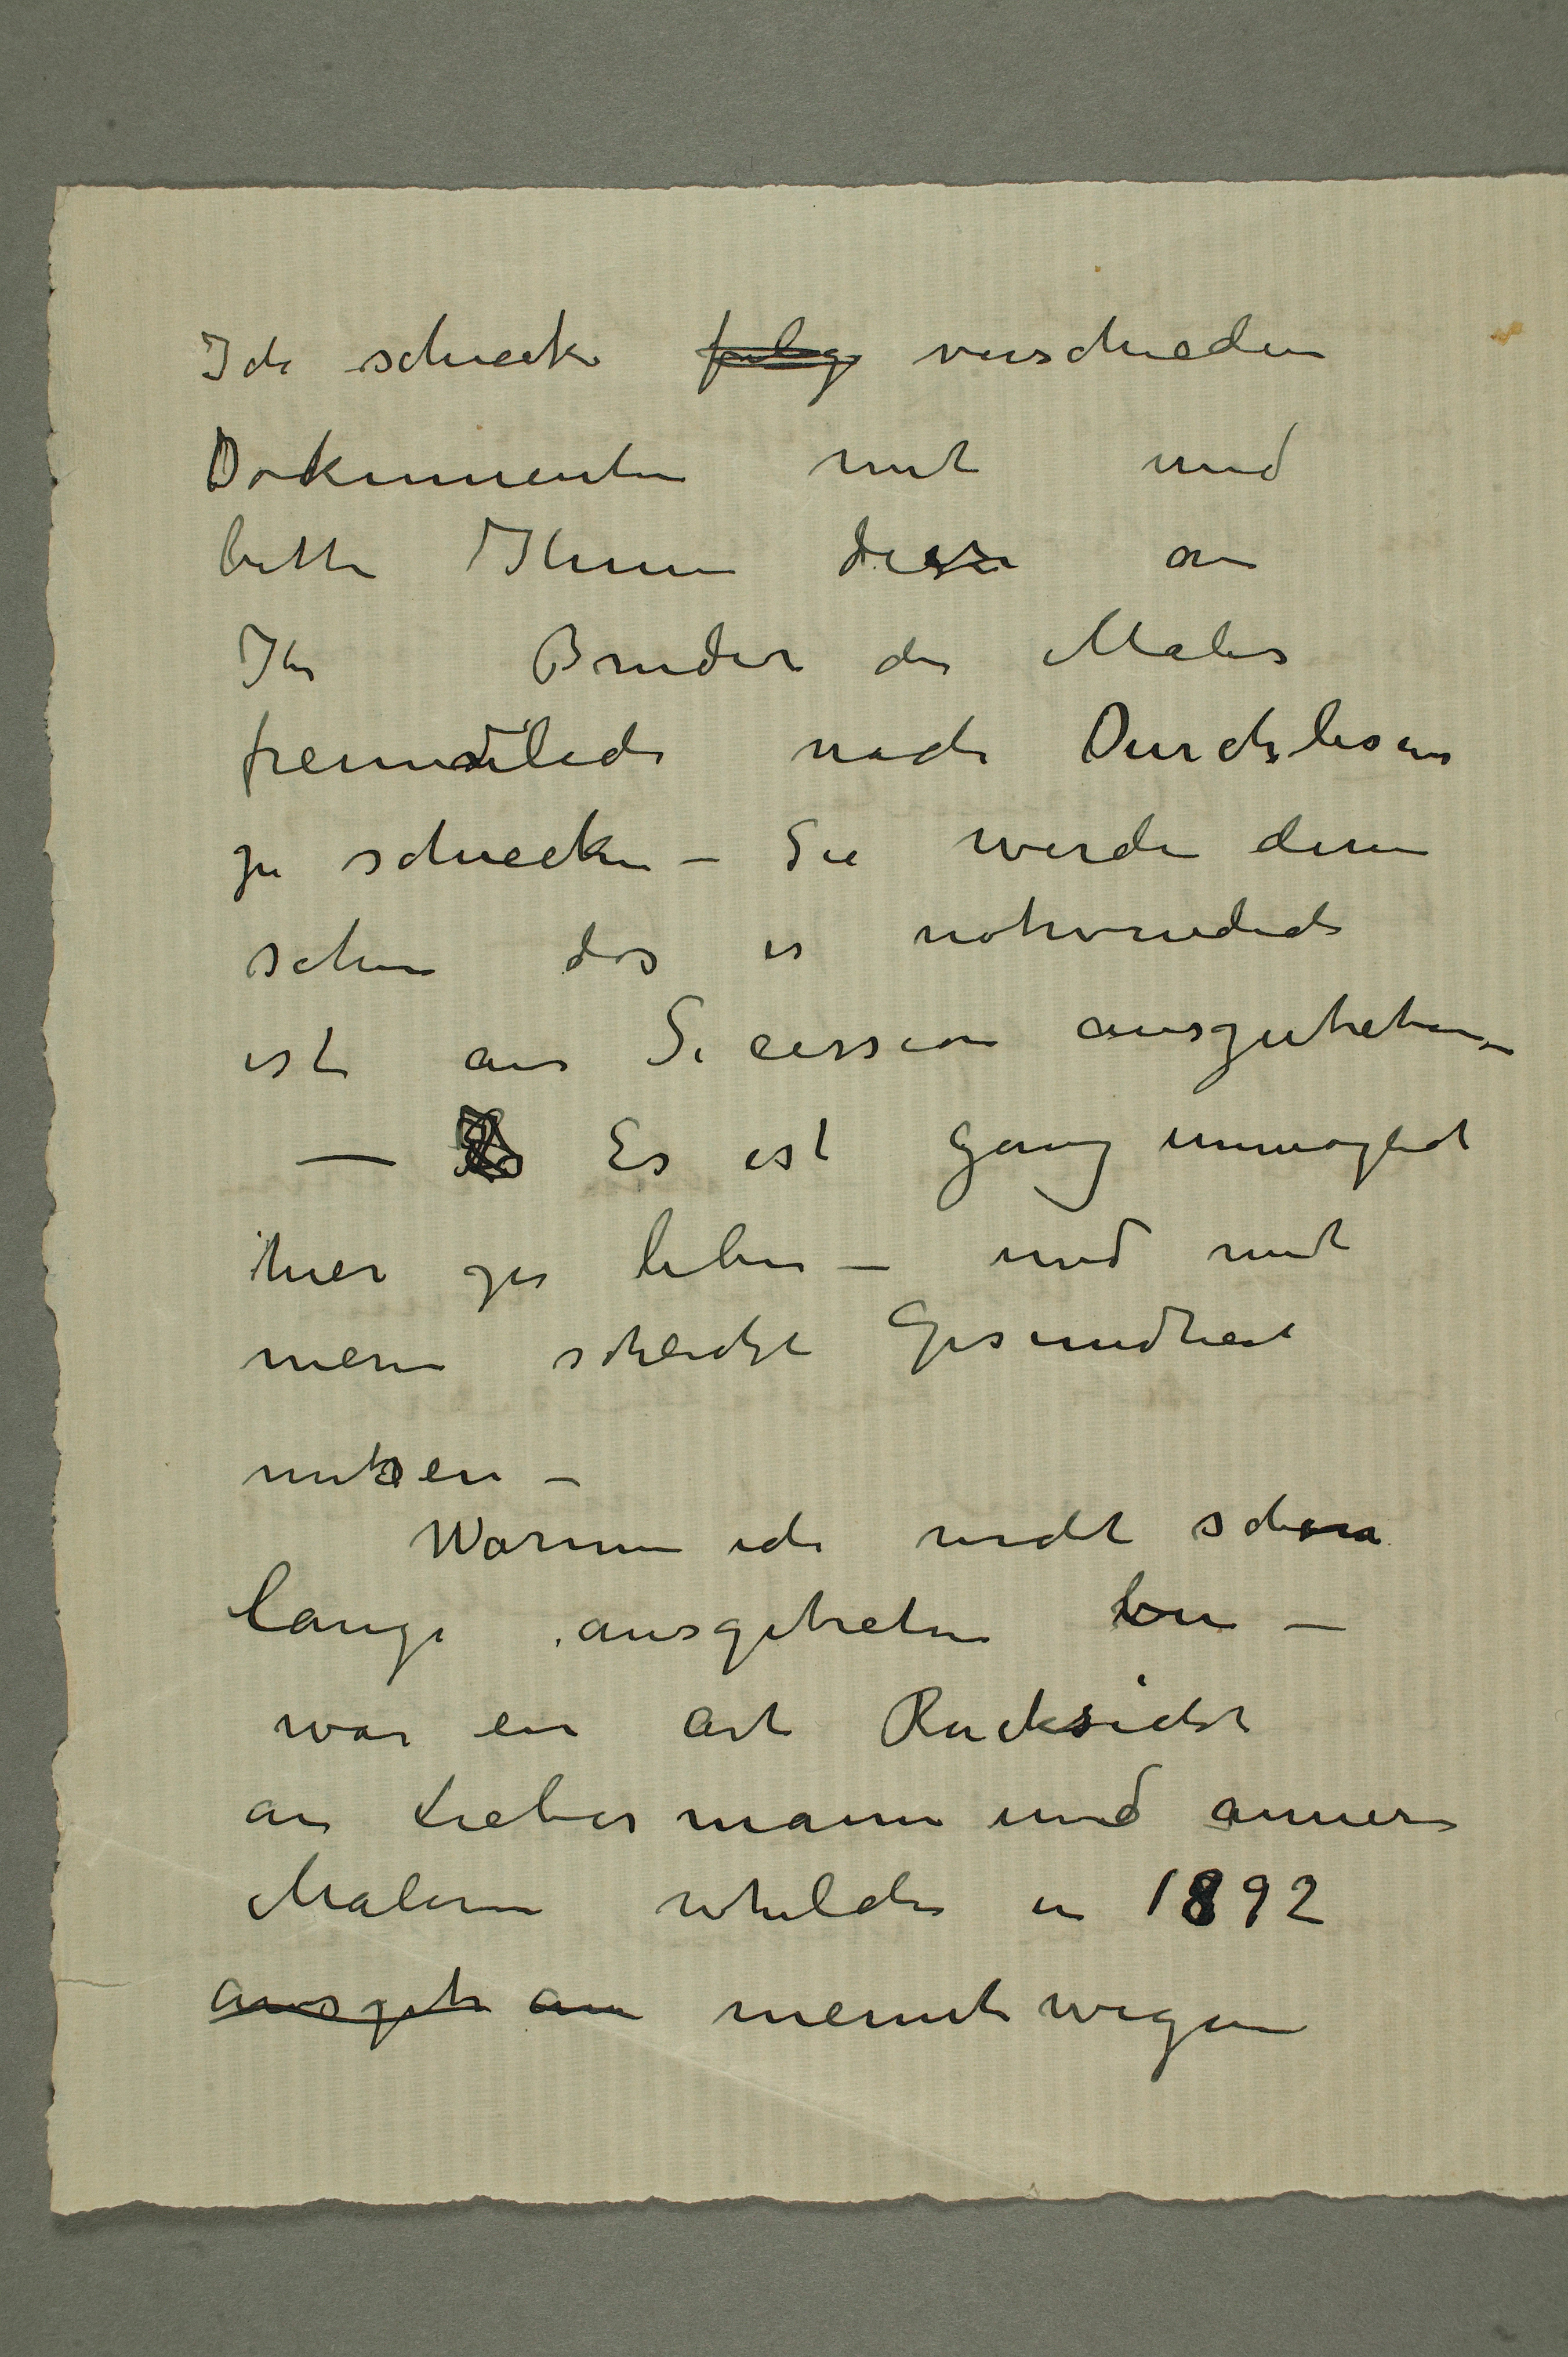 Ich schicke folg verschieden
Dokumenten mit und
bitte Ihnen diese an
Ihr Bruder der Maler
freundlich nach Durchlesen
zu schicken – Sie werden denn
sehen das es nothwendich
ist aus Secession auszutreten –
– Es Es ist ganz unmöglich
hier zu leben – und mit
meine schlecht Gesundheit
mitsen –
Warum ich nicht schon
lange ausgetreten bin –
war ein art Rucksicht
an Liebermann und anner
Malern whelche in 1892
ausgetr am meinetwegen